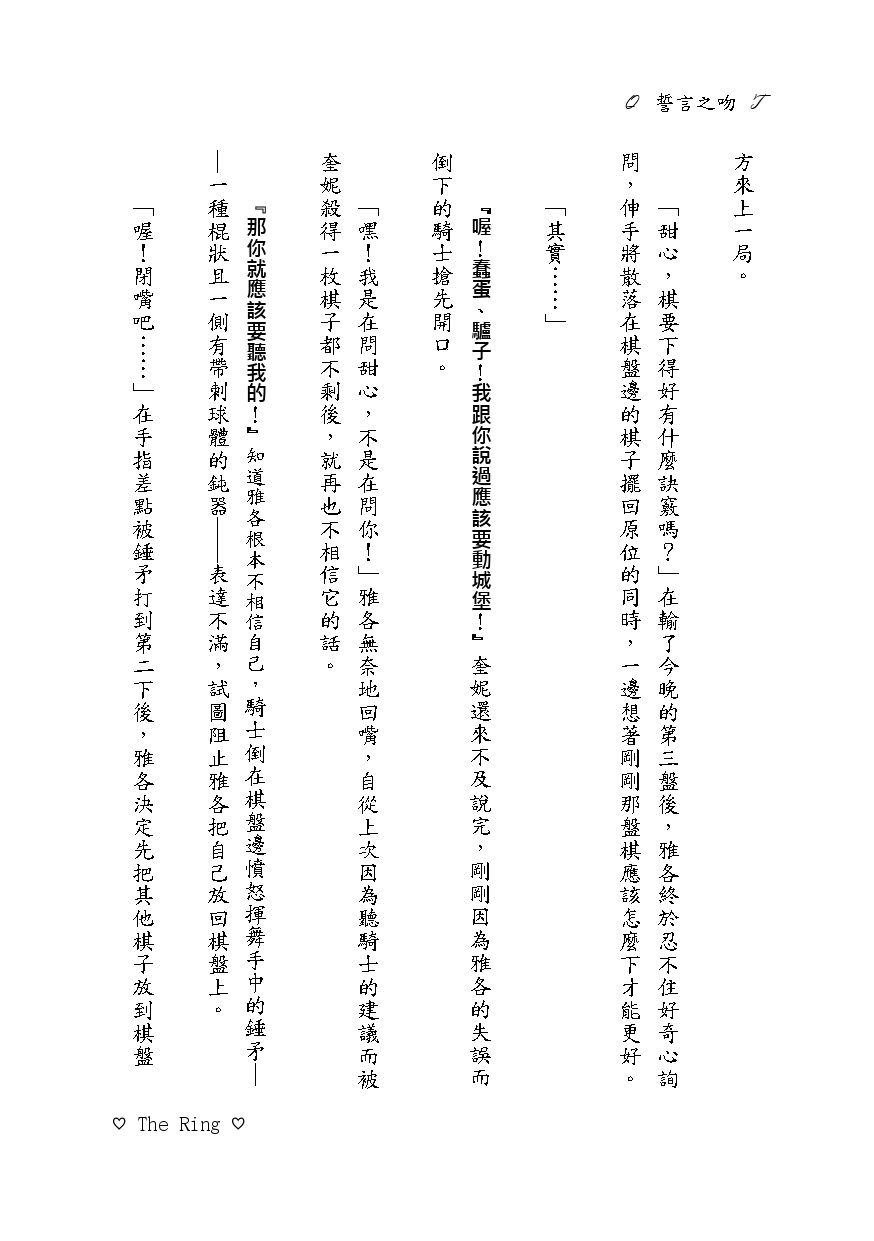 O 誓言之吻 T
方來上一局。
「甜心，棋要下得好有什麼訣竅嗎？」在輸了今晚的第三盤後，雅各終於忍不住好奇心詢
問，伸手將散落在棋盤邊的棋子擺回原位的同時，一邊想著剛剛那盤棋應該怎麼下才能更好。
「其實……」
『喔！蠢蛋、驢子！我跟你說過應該要動城堡！』奎妮還來不及說完，剛剛因為雅各的失誤而
倒下的騎士搶先開口。
「嘿！我是在問甜心，不是在問你！」雅各無奈地回嘴，自從上次因為聽騎士的建議而被
奎妮殺得一枚棋子都不剩後，就再也不相信它的話。
『那你就應該要聽我的！』知道雅各根本不相信自己，騎士倒在棋盤邊憤怒揮舞手中的錘矛—
—一種棍狀且一側有帶刺球體的鈍器——表達不滿，試圖阻止雅各把自己放回棋盤上。
「喔！閉嘴吧……」在手指差點被錘矛打到第二下後，雅各決定先把其他棋子放到棋盤
♡ The Ring ♡